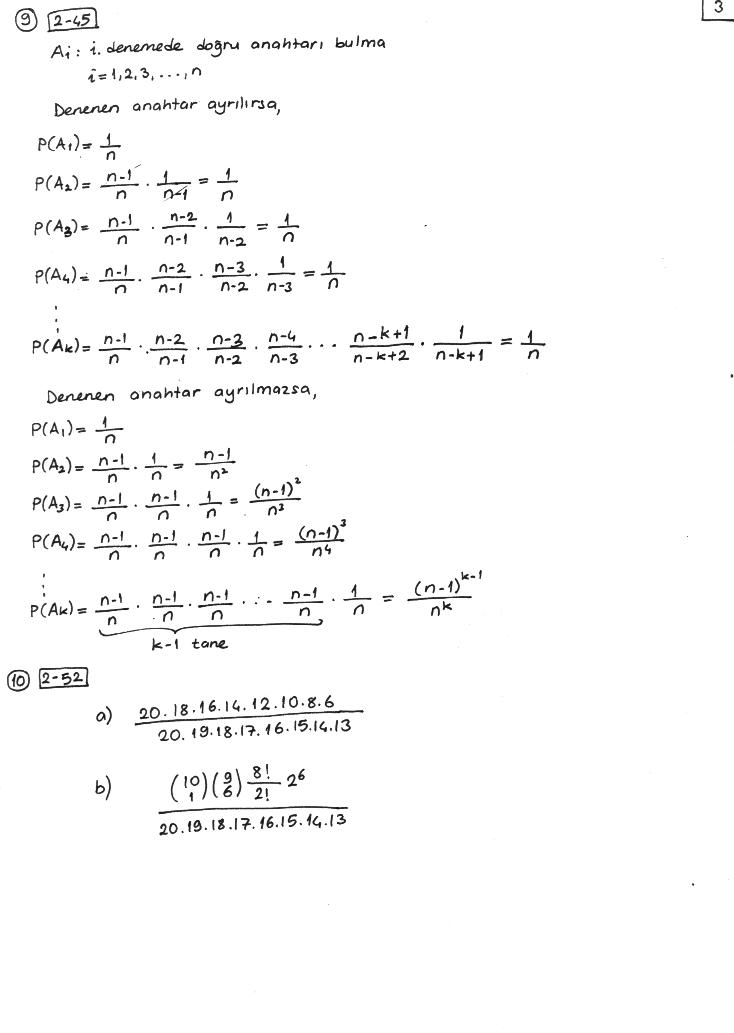 3
9 2-45
Ai : i. denemede doğru anahtarı bulma
i=1,2,3,...,n
Denenen anahtar ayrılırsa,
P(A1)= 1/n
P(A2)= n-1/n . 1/n-1 = 1/n
P(A3)= n-1/n . n-2/n-1 . 1/n-2 = 1/n
P(A4)= n-1/n . n-2/n-1 . n-3/n-2 . 1/n-3 = 1/n
⋮
P(Ak)= n-1/n . n-2/n-1 . n-3/n-2 . n-4/n-3 ... n-k+1/n-k+2 . 1/n-k+1 = 1/n
Denenen anahtar ayrılmazsa,
P(A1)= 1/n
P(A2)= n-1/n . 1/n = n-1/n²
P(A3)= n-1/n . n-1/n . 1/n = (n-1)²/n³
P(A4)= n-1/n . n-1/n . n-1/n . 1/n = (n-1)³/n⁴
⋮
P(Ak)= n-1/n . n-1/n . n-1/n ... n-1/n . 1/n = (n-1)^k-1/n^k
k-1 tane
10 2-52
a) 20.18.16.14.12.10.8.6
20.19.18.17.16.15.14.13
b) (10 1)(9 6) 8!/2! 2⁶
20.19.18.17.16.15.14.13